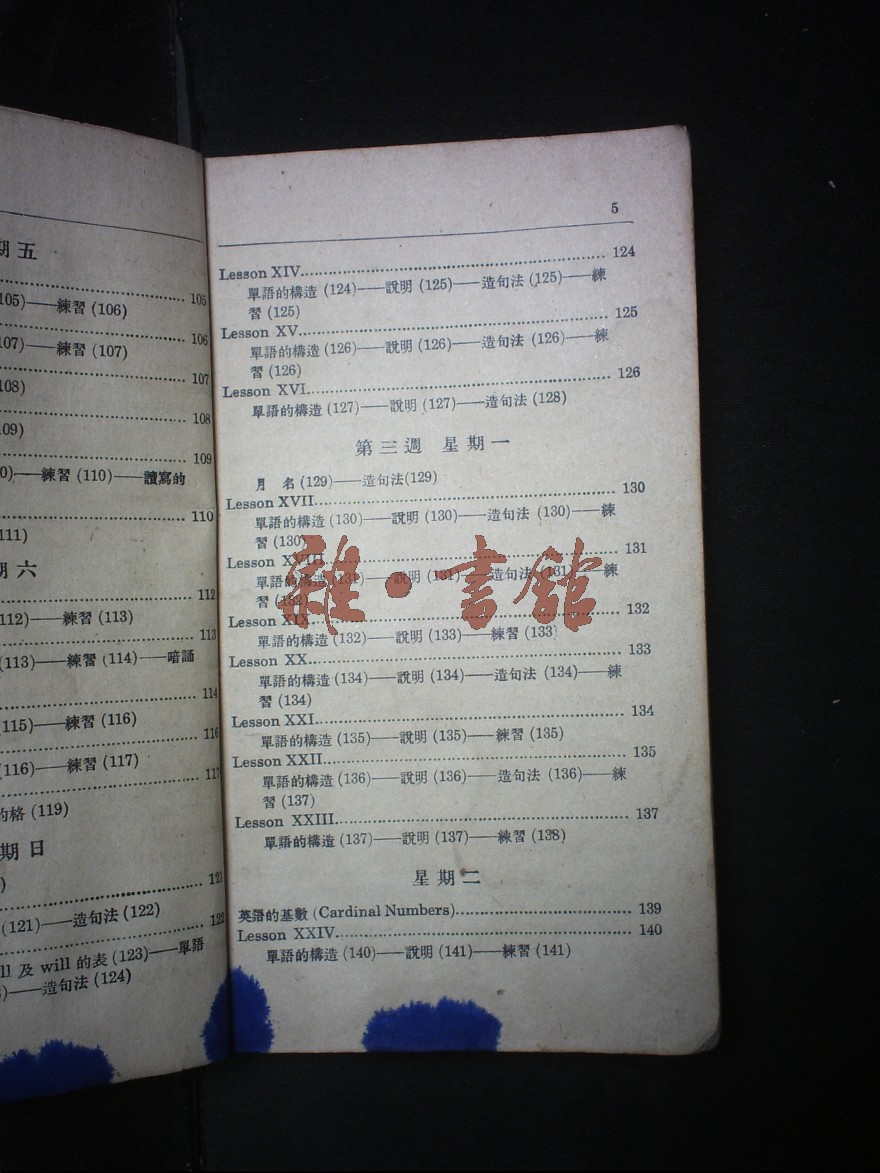 期五
105
105)——練習 (106)
106
107)——練習 (107)
107
108)
108
109)
109
0)——練習 (110)——讀寫的
110
111)
期六
112
112)——練習 (113)
113
(113)——練習 (114)——暗誦
114
(115)——練習 (116)
116
(116)——練習 (117)
117
的格 (119)
期日
)
121
(121)——造句法 (122)
122
ll 及 will 的表 (123)——單語
)——造句法 (124)
5
Lesson XIV 124
單語的構造 (124)——說明 (125)——造句法 (125)——練
習 (125)
Lesson XV 125
單語的構造 (126)——說明 (126)——造句法 (126)——練
習 (126)
Lesson XVI 126
單語的構造 (127)——說明 (127)——造句法 (128)
第三週 星期一
月 名 (129)——造句法(129)
Lesson XVII 130
單語的構造 (130)——說明 (130)——造句法 (130)——練
習 (130)
Lesson XVIII 131
單語的構造 (131)——說明 (131)——造句法 (131)——練
習
Lesson XIX 132
單語的構造 (132)——說明 (133)——練習 (133
Lesson XX 133
單語的構造 (134)——說明 (134)——造句法 (134)——練
習 (134)
Lesson XXI 134
單語的構造 (135)——說明 (135)——練習 (135)
Lesson XXII 135
單語的構造 (136)——說明 (136)——造句法 (136)——練
習 (137)
Lesson XXIII 137
單語的構造 (137)——說明 (137)——練習 (138)
星期二
英語的基數 (Cardinal Numbers) 139
Lesson XXIV 140
單語的構造 (140)——說明 (141)——練習 (141)
雜·書館